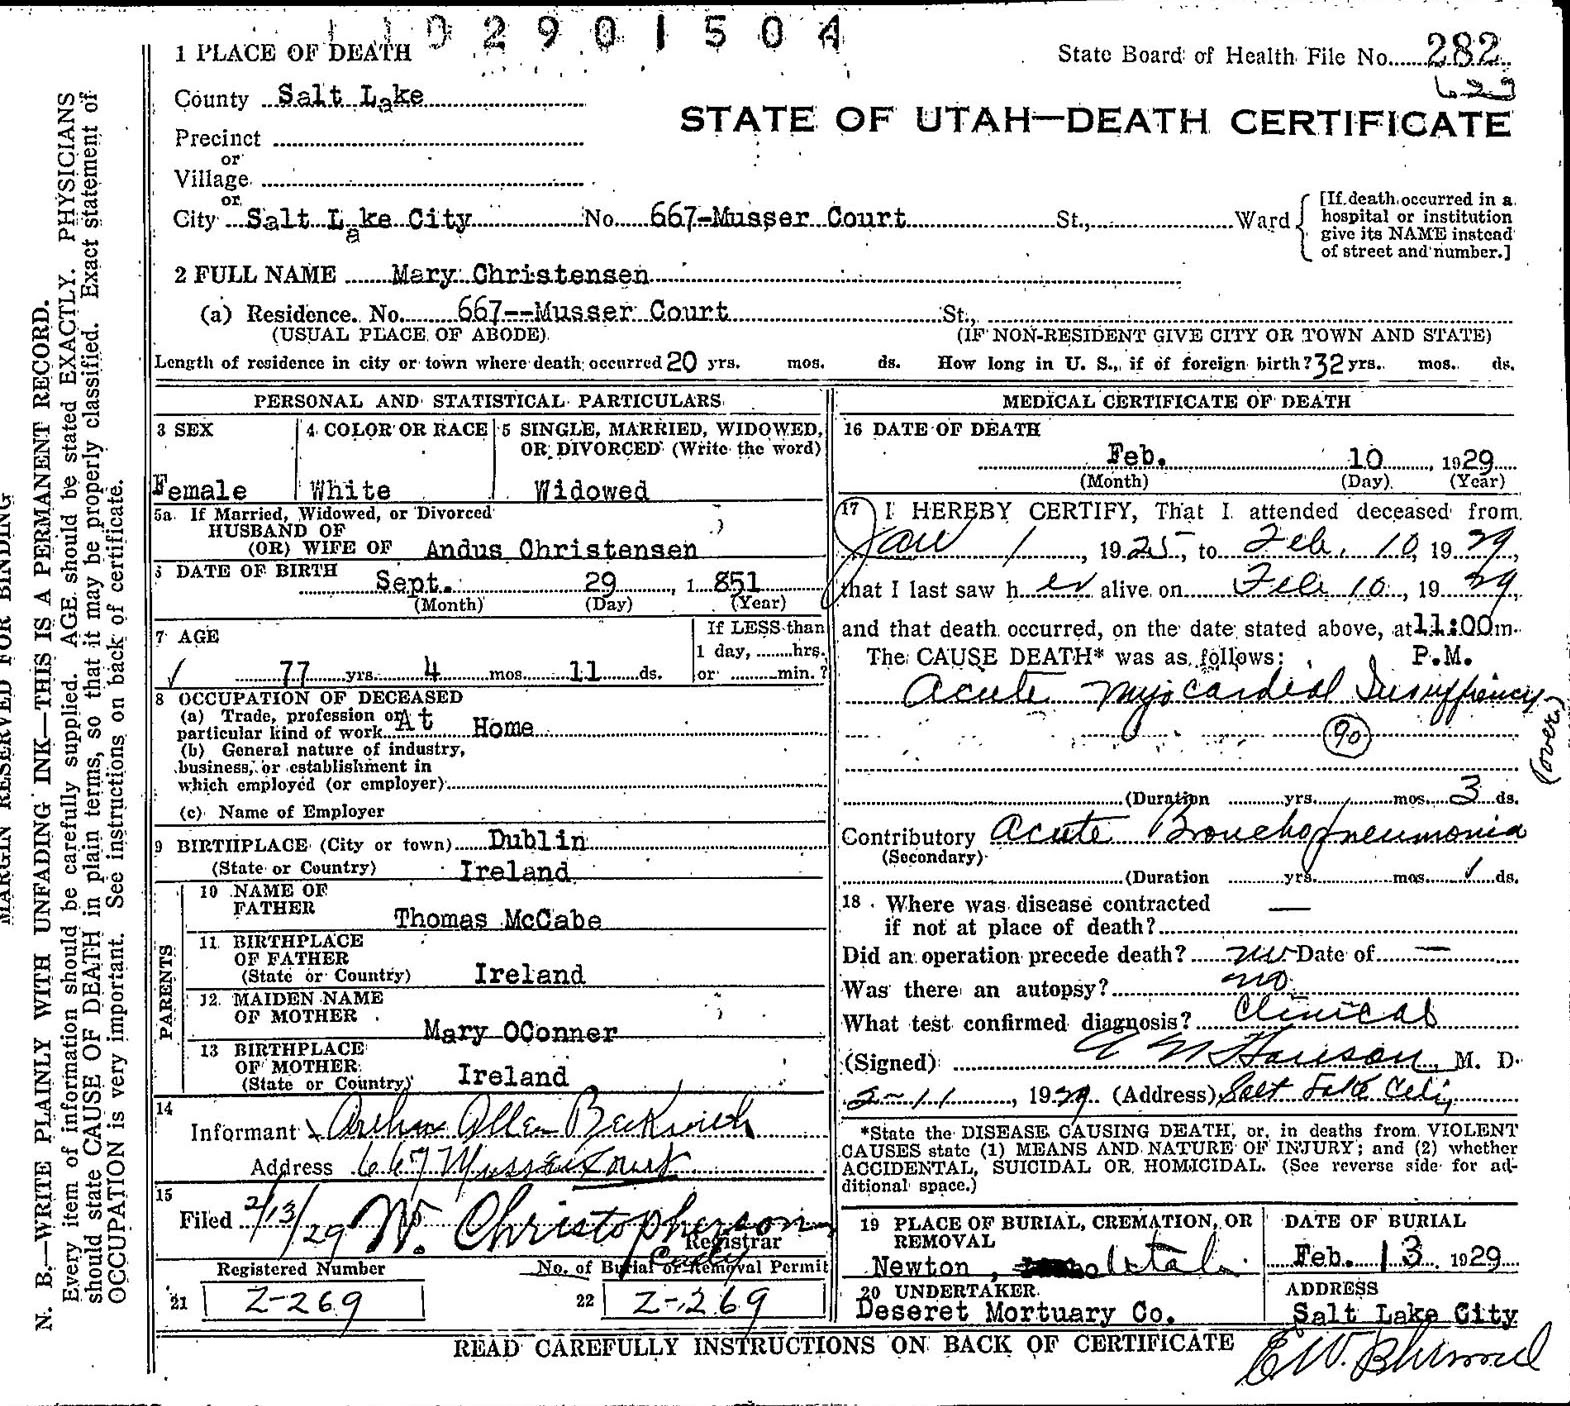 1 1 0 2 9 0 1 5 0 4
1 PLACE OF DEATH
State Board of Health File No. 282
629
County Salt Lake
STATE OF UTAH—DEATH CERTIFICATE
Precinct
or
Village
or
City Salt Lake City No. 667-Musser Court St., Ward
[If death occurred in a
hospital or institution
give its NAME instead
of street and number.]
2 FULL NAME Mary Christensen
(a) Residence. No. 667--Musser Court St.,
(USUAL PLACE OF ABODE) (IF NON-RESIDENT GIVE CITY OR TOWN AND STATE)
Length of residence in city or town where death occurred 20 yrs. mos. ds. How long in U. S., if of foreign birth? 32 yrs. mos. ds.
PERSONAL AND STATISTICAL PARTICULARS
3 SEX
Female
4 COLOR OR RACE
White
5 SINGLE, MARRIED, WIDOWED,
OR DIVORCED (Write the word)
Widowed
5a If Married, Widowed, or Divorced
HUSBAND OF
(OR) WIFE OF Andus Christensen
6 DATE OF BIRTH Sept. 29, 1851
(Month) (Day) (Year)
7 AGE
77 yrs. 4 mos. 11 ds.
If LESS than
1 day, ......hrs.
or ......min.?
8 OCCUPATION OF DECEASED
(a) Trade, profession or
particular kind of work At Home
(b) General nature of industry,
business, or establishment in
which employed (or employer)
(c) Name of Employer
9 BIRTHPLACE (City or town) Dublin
(State or Country) Ireland
PARENTS
10 NAME OF
FATHER Thomas McCabe
11 BIRTHPLACE
OF FATHER
(State or Country) Ireland
12 MAIDEN NAME
OF MOTHER Mary OConner
13 BIRTHPLACE
OF MOTHER
(State or Country) Ireland
14
Informant Allen Beckwich
Address 667 Musser Court
15
Filed 2/13/29 W. Christopherson
Registrar
Registered Number
21 Z-269
No. of Burial or Removal Permit
22 Z-269
MEDICAL CERTIFICATE OF DEATH
16 DATE OF DEATH
Feb. 10, 1929
(Month) (Day) (Year)
17 I HEREBY CERTIFY, That I attended deceased from
Jan 1, 1925, to Feb. 10, 1929,
that I last saw her alive on Feb 10, 1929,
and that death occurred, on the date stated above, at 11:00 m.
The CAUSE DEATH* was as follows: P.M.
Acute Myocardial Insufficiency
90
(over)
(Duration yrs. mos. 3 ds.
Contributory Acute Bronchopneumonia
(Secondary)
(Duration yrs. mos. 1 ds.
18 Where was disease contracted
if not at place of death? —
Did an operation precede death? no Date of —
Was there an autopsy? no
What test confirmed diagnosis? Clinical
(Signed) Hanson, M. D.
2-11, 1929 (Address) Salt Lake City
*State the DISEASE CAUSING DEATH, or, in deaths from VIOLENT
CAUSES state (1) MEANS AND NATURE OF INJURY; and (2) whether
ACCIDENTAL, SUICIDAL OR HOMICIDAL. (See reverse side for ad-
ditional space.)
19 PLACE OF BURIAL, CREMATION, OR
REMOVAL
Newton, Utah.
DATE OF BURIAL
Feb. 13 1929
20 UNDERTAKER
Deseret Mortuary Co.
ADDRESS
Salt Lake City
READ CAREFULLY INSTRUCTIONS ON BACK OF CERTIFICATE
MARGIN RESERVED FOR BINDING
N. B.—WRITE PLAINLY WITH UNFADING INK—THIS IS A PERMANENT RECORD.
Every item of information should be carefully supplied. AGE should be stated EXACTLY. PHYSICIANS
should state CAUSE OF DEATH in plain terms, so that it may be properly classified. Exact statement of
OCCUPATION is very important. See instructions on back of certificate.